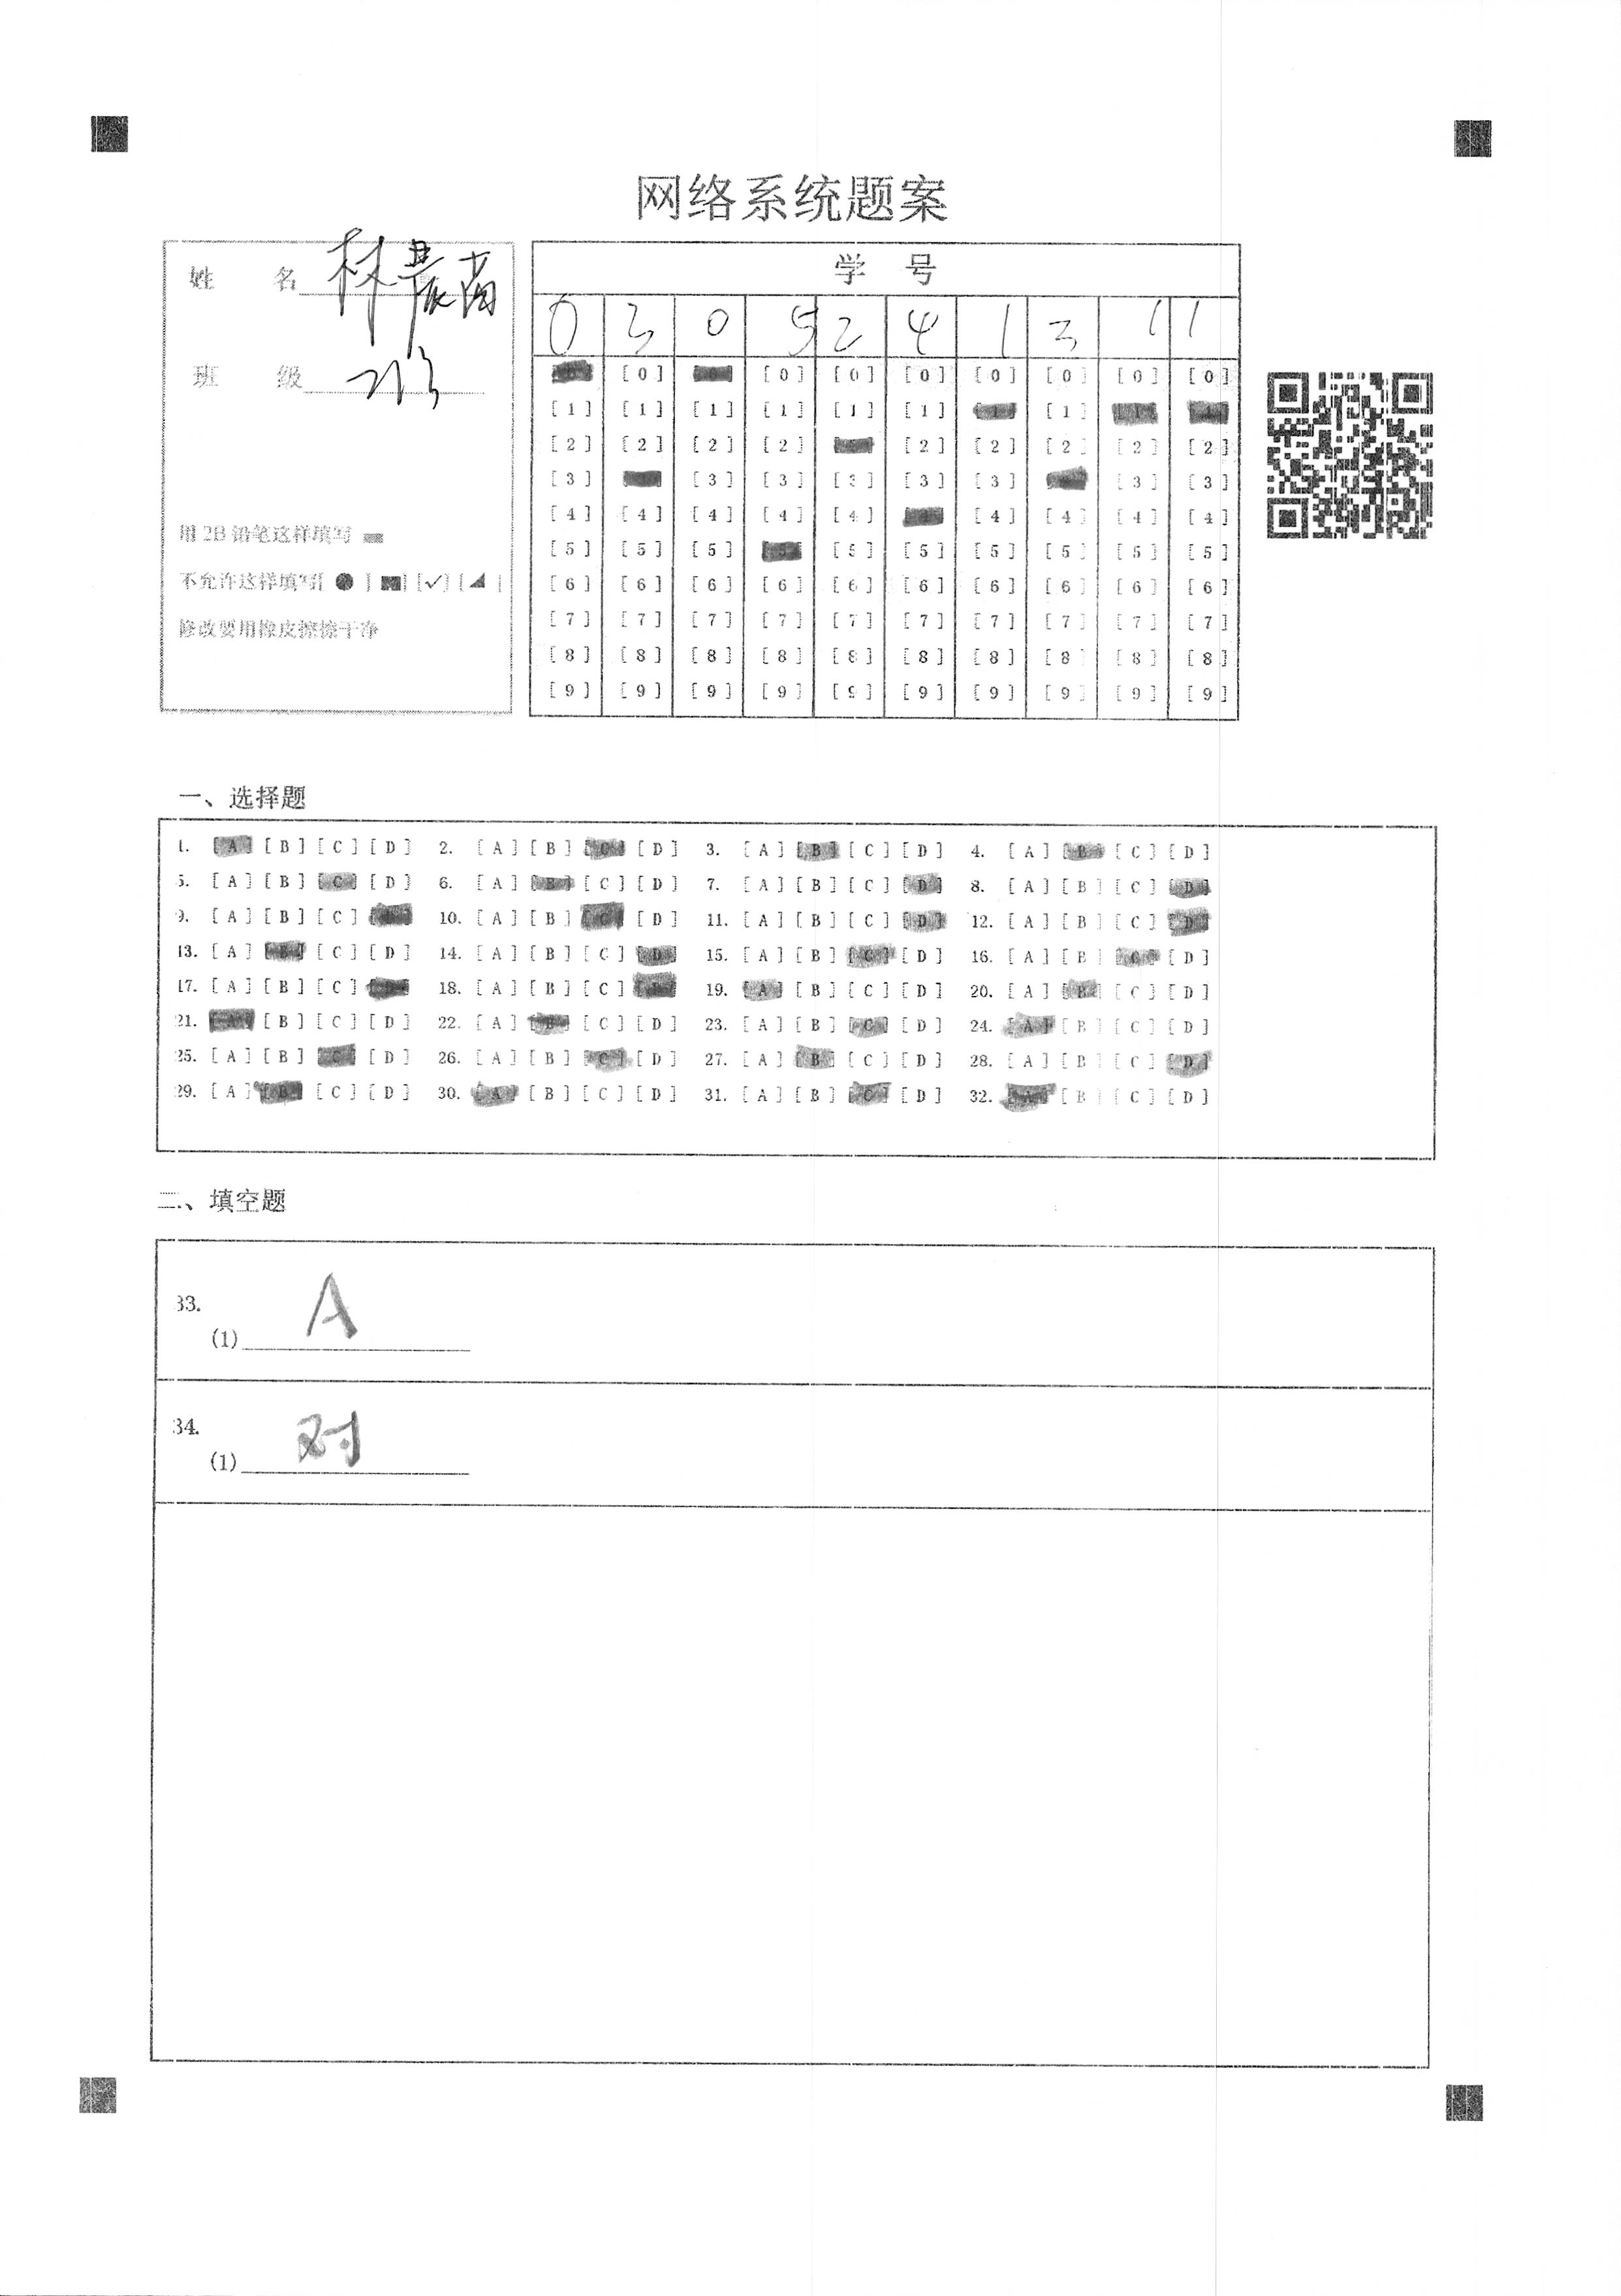 网络系统题案
姓 名 林晨菡
班 级
用 2B 铅笔这样填写
不允许这样填写[ ● ] [✓] [ ]
修改要用橡皮擦擦干净
学 号
0 3 0 5 2 4 1 3 1 1
[0] [0] [0] [0] [0] [0] [0] [0] [0] [0]
[1] [1] [1] [1] [1] [1] [1] [1] [1] [1]
[2] [2] [2] [2] [2] [2] [2] [2] [2]
[3] [3] [3] [3] [3] [3] [3] [3]
[4] [4] [4] [4] [4] [4] [4] [4] [4] [4]
[5] [5] [5] [5] [5] [5] [5] [5] [5] [5]
[6] [6] [6] [6] [6] [6] [6] [6] [6] [6]
[7] [7] [7] [7] [7] [7] [7] [7] [7] [7]
[8] [8] [8] [8] [8] [8] [8] [8] [8] [8]
[9] [9] [9] [9] [9] [9] [9] [9] [9] [9]
一、选择题
1. [A] [B] [C] [D] 2. [A] [B] [C] [D] 3. [A] [B] [C] [D] 4. [A] [B] [C] [D]
5. [A] [B] [C] [D] 6. [A] [B] [C] [D] 7. [A] [B] [C] [D] 8. [A] [B] [C] [D]
9. [A] [B] [C] [D] 10. [A] [B] [C] [D] 11. [A] [B] [C] [D] 12. [A] [B] [C] [D]
13. [A] [B] [C] [D] 14. [A] [B] [C] [D] 15. [A] [B] [C] [D] 16. [A] [B] [C] [D]
17. [A] [B] [C] [D] 18. [A] [B] [C] [D] 19. [A] [B] [C] [D] 20. [A] [B] [C] [D]
21. [A] [B] [C] [D] 22. [A] [B] [C] [D] 23. [A] [B] [C] [D] 24. [A] [B] [C] [D]
25. [A] [B] [C] [D] 26. [A] [B] [C] [D] 27. [A] [B] [C] [D] 28. [A] [B] [C] [D]
29. [A] [B] [C] [D] 30. [A] [B] [C] [D] 31. [A] [B] [C] [D] 32. [A] [B] [C] [D]
二、填空题
33.
(1) A
34.
(1) 对